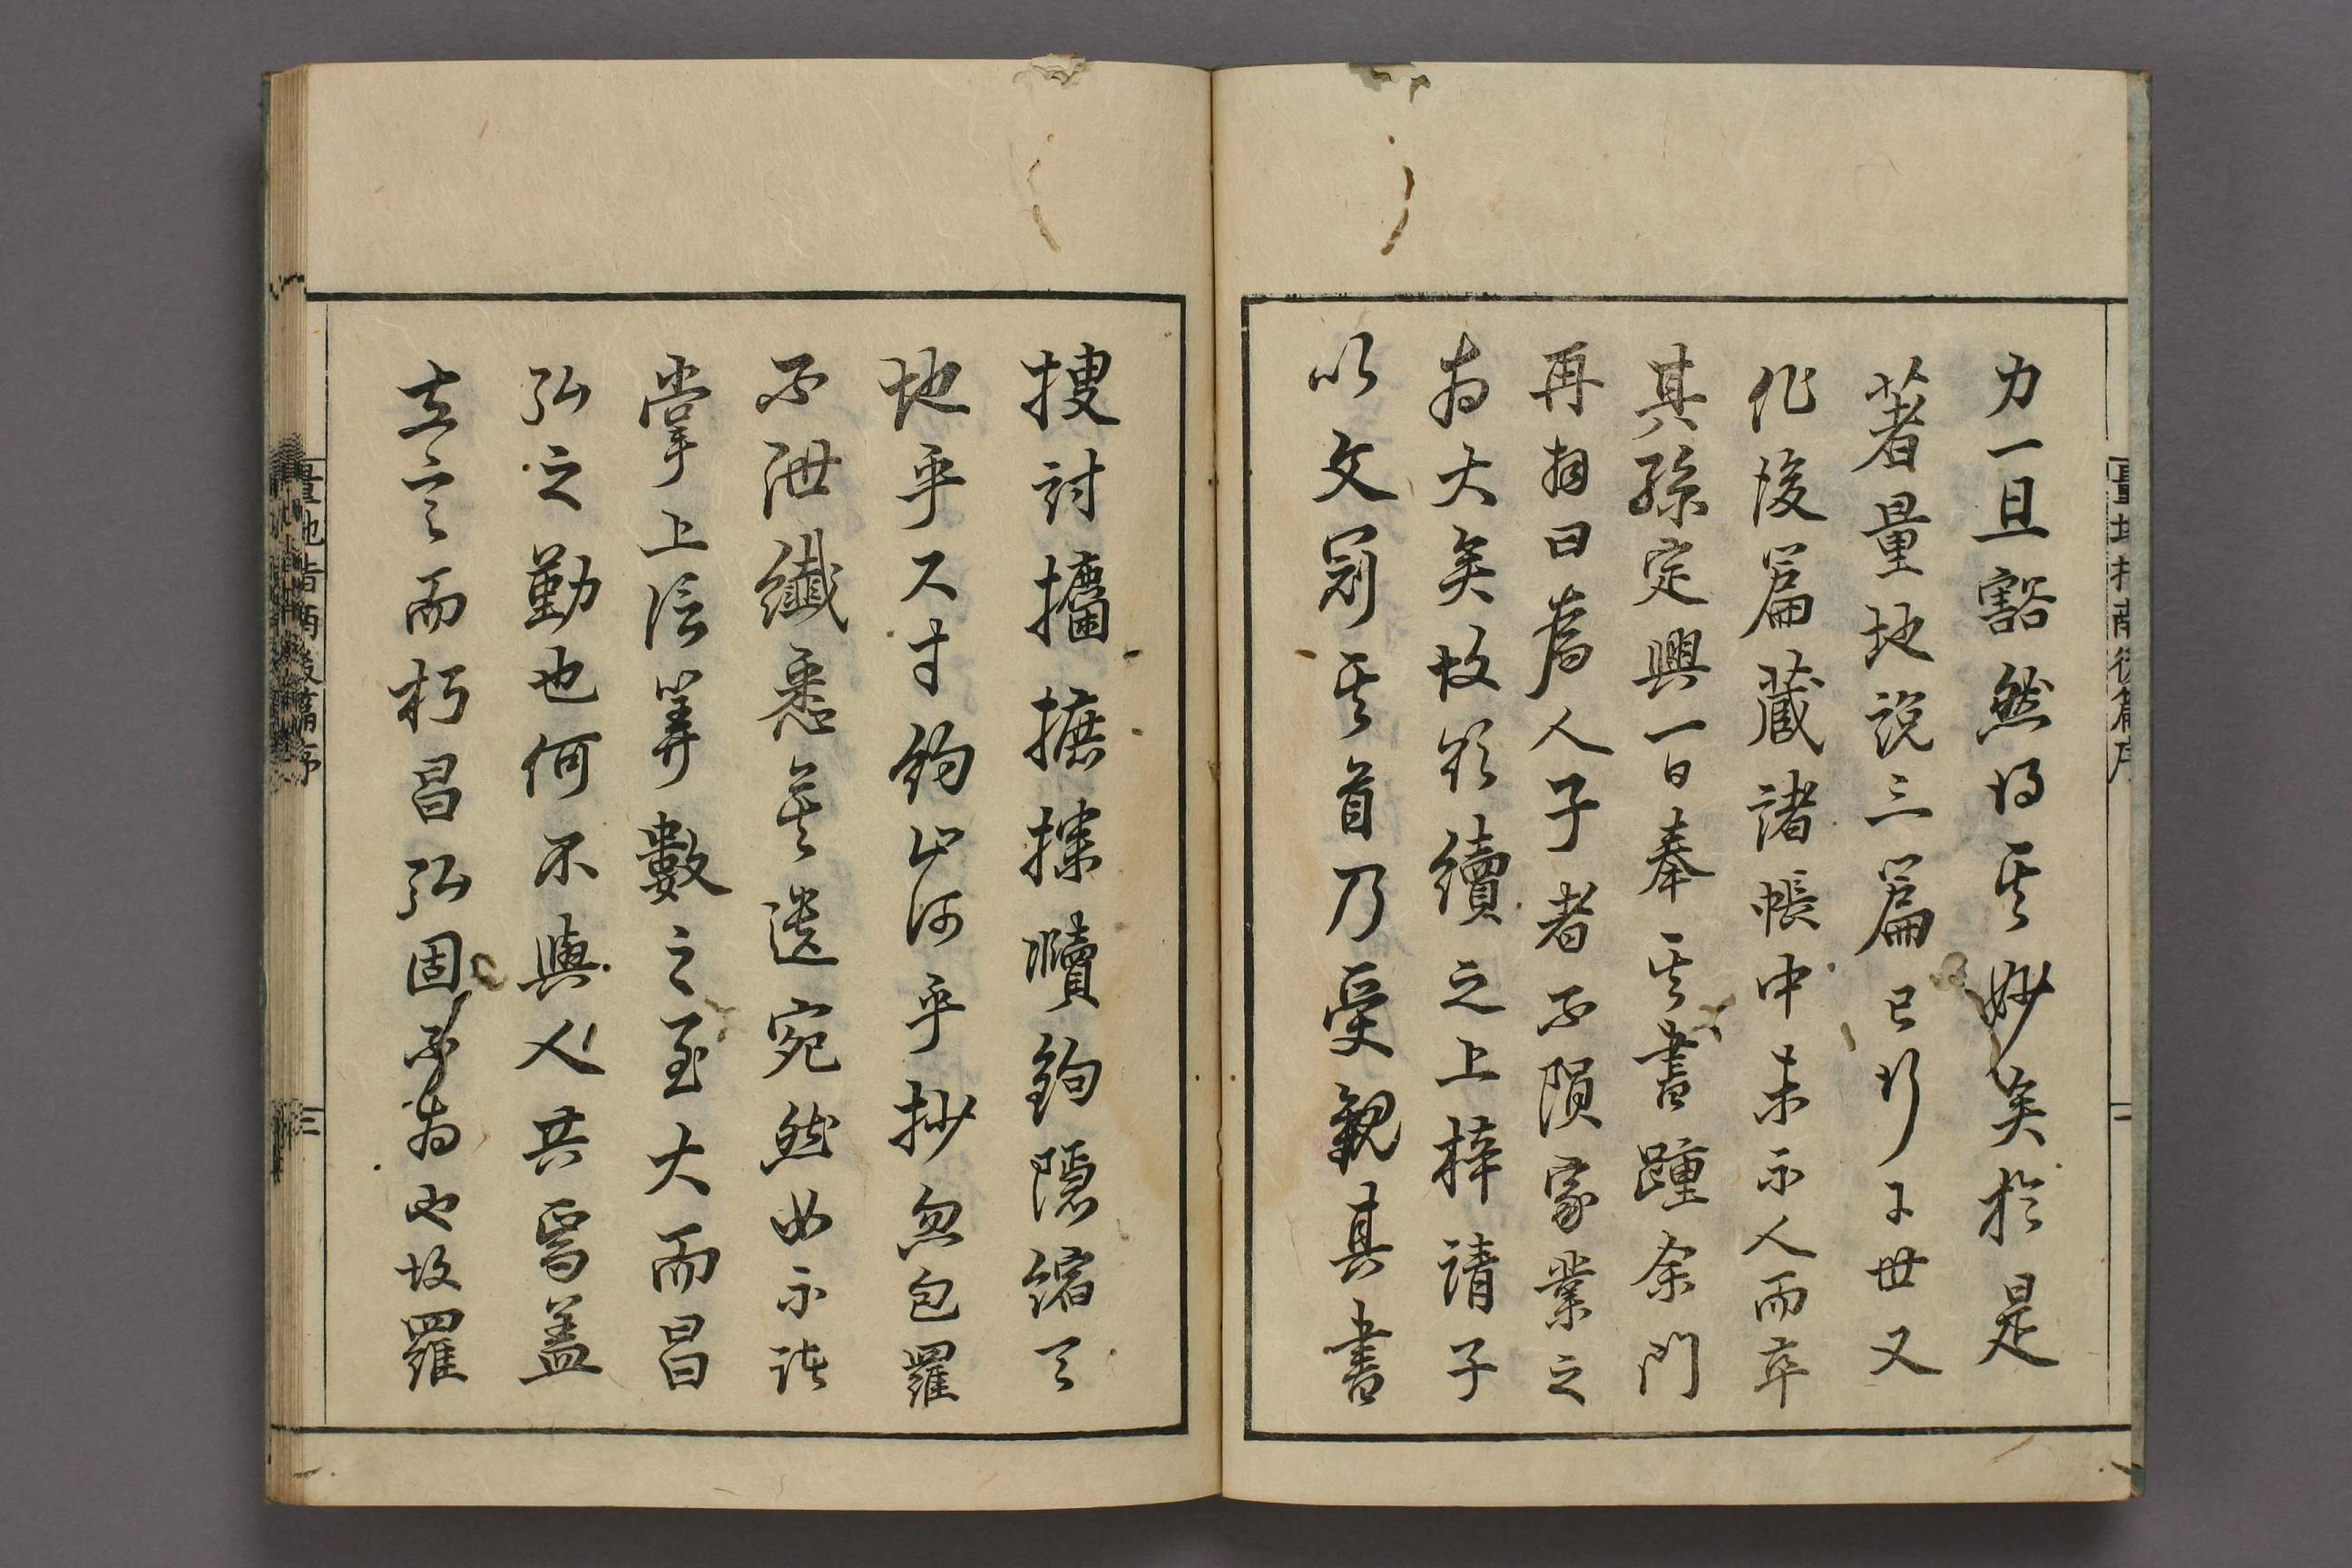 力一旦豁然得其妙矣於是
著量地説三篇已行于世又
作後篇藏諸帳中未示人而卒
其孫定興一日奉其書踵余門
再拜曰蓋人子者不隕家業之
為大矣故欲續之上梓請子
以文冠其首乃受觀其書
搜討攟摭探賾鉤隱縮天
地乎尺寸約山河乎抄忽包羅
不泄纖悉無遺宛然如示諸
掌上信筭數之至大而昌
弘之勤也何不與人共焉蓋
立言而朽昌弘固不為也故羅
量地指南後篇序
二
量地指南後篇序
三